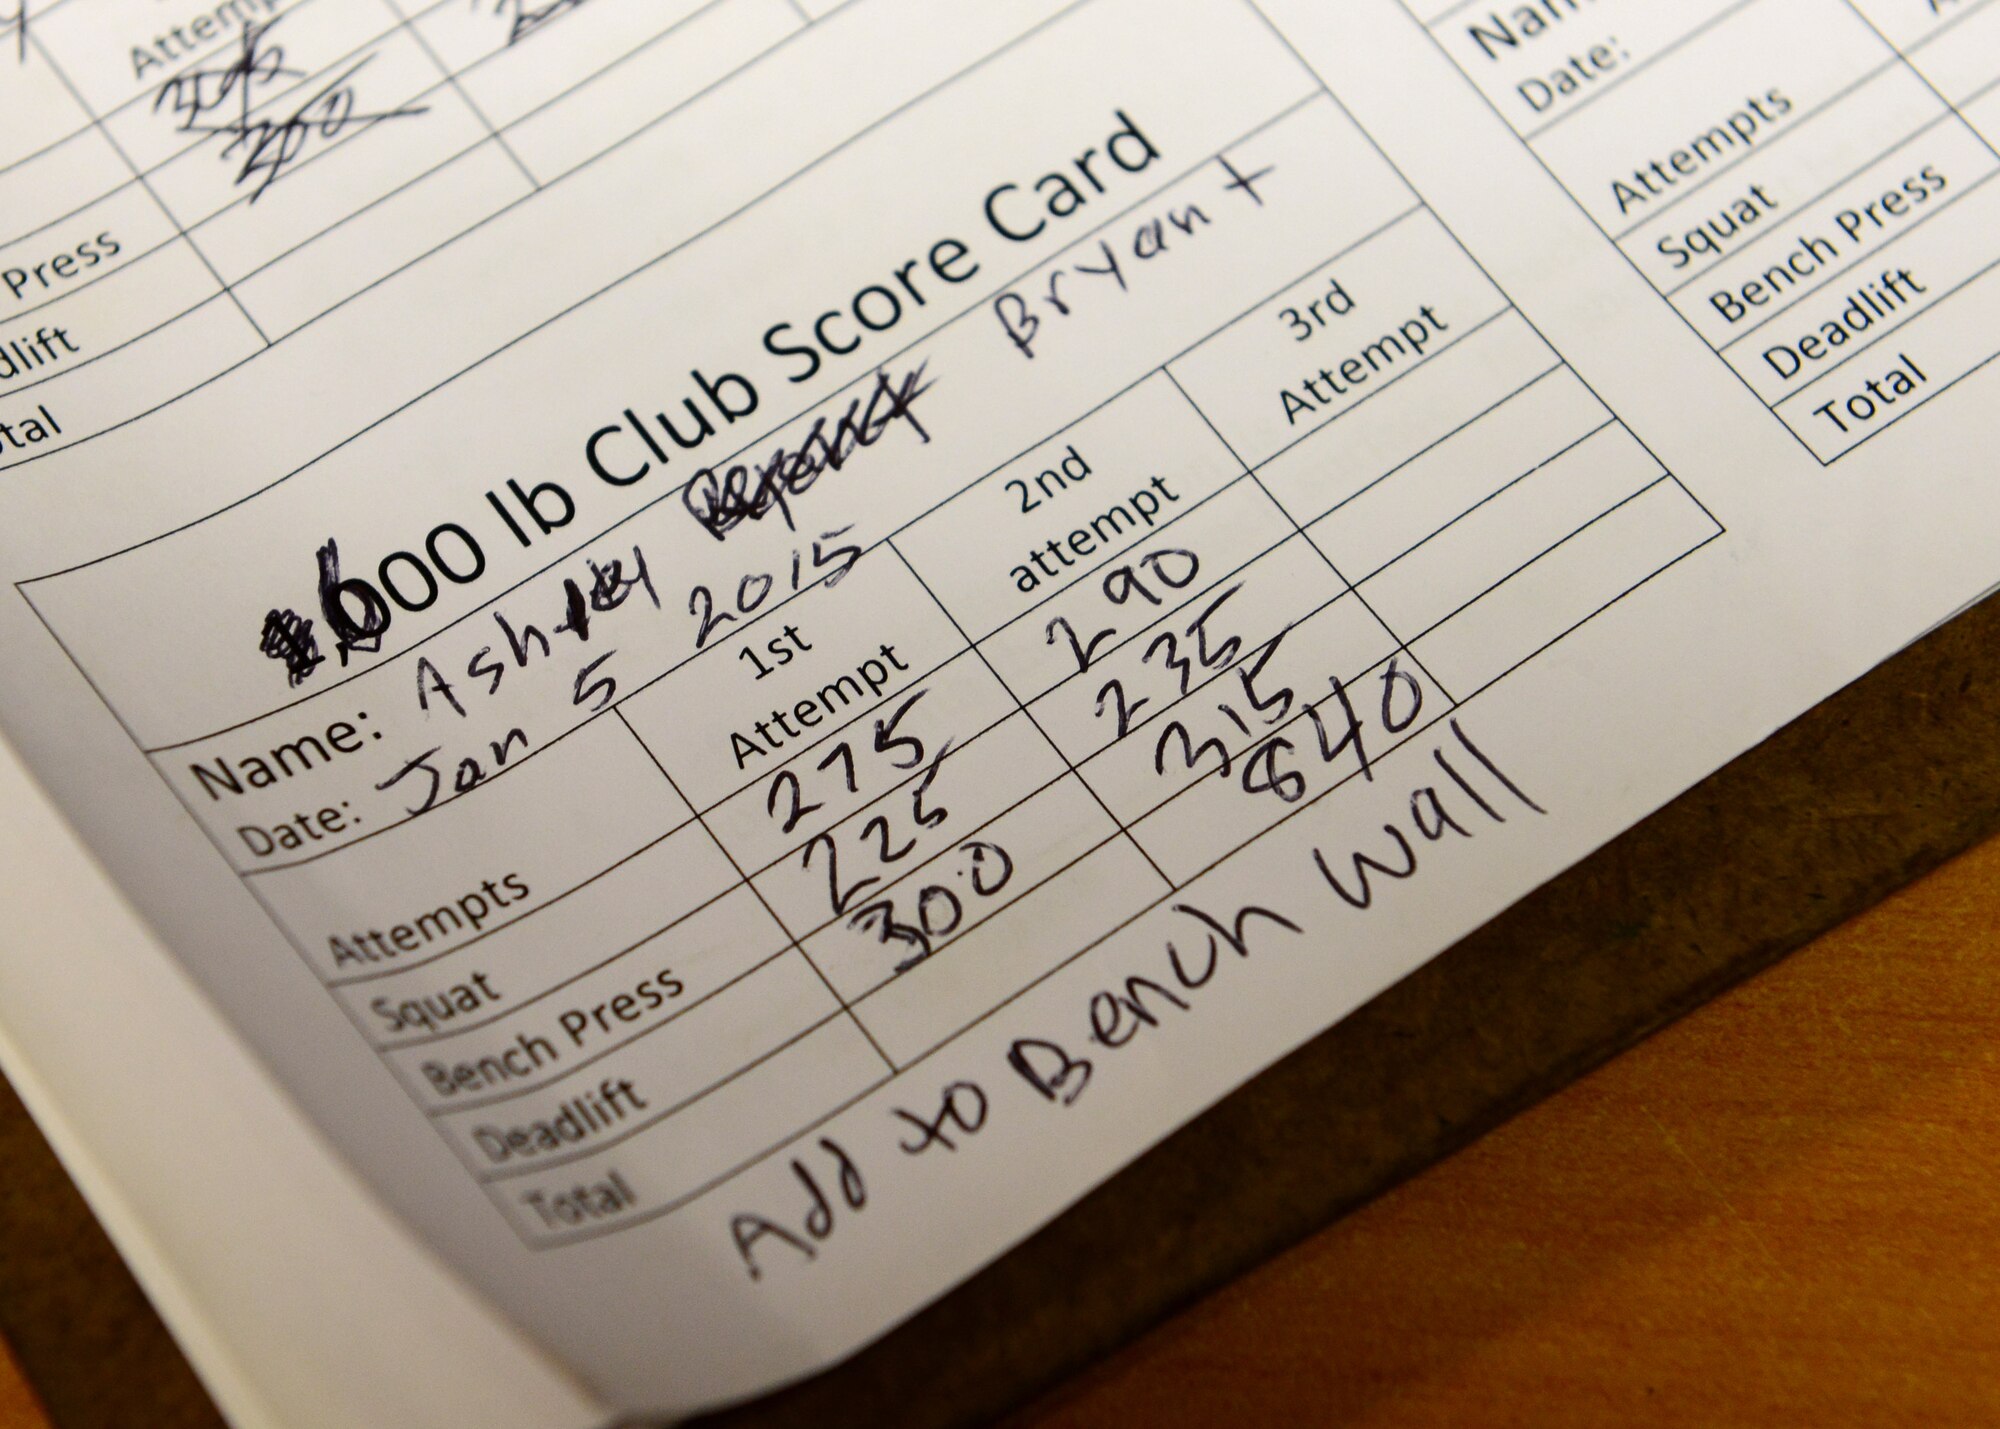 Attempt
Press
tal
1,600 lb Club Score Card
Name: Ashley Bryant
Date: Jan 5 2015
Attempts 1st Attempt 2nd attempt 3rd Attempt
Squat 275 290
Bench Press 225 235
Deadlift 300 315
Total 840
Add to Bench Wall
Date:
Attempts
Squat
Bench Press
Deadlift
Total